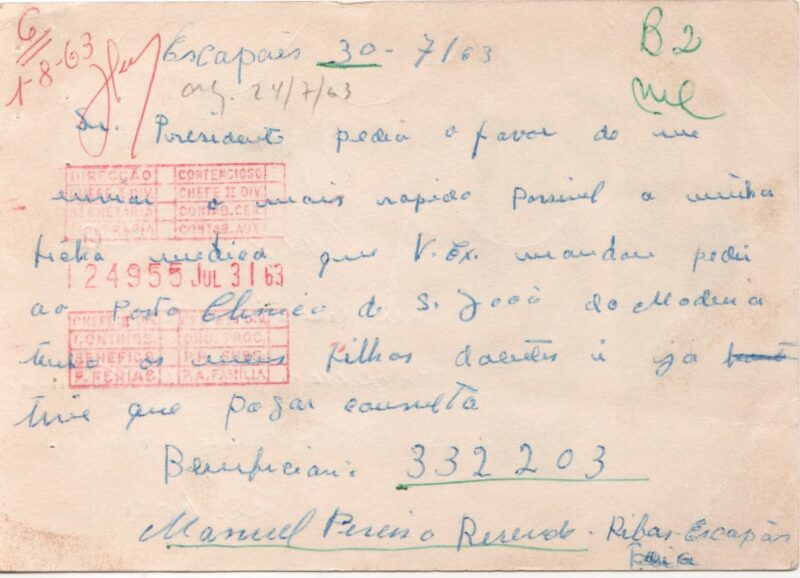 6
1-8-63
Escapães 30-7/63
B2
24/7/63
Sr. Presidente pedia o favor de me
DIRECÇÃO CONTENCIOSO
CHEFE I DIV. CHEFE II DIV.
SECRETARIA CONTAB. CEX.
CONTAB. AUX.
enviar o mais rapido Possivel a minha
ficha medica que V. Ex. mandou pedir
124955 JUL 31 63
ao Posto Clinico de S. João da Madeira
CONTINOS ORG. PROC.
BENEFICIOS
P. FÉRIAS P.A. FAMÍLIA
tenho os meus filhos doentes i ja
tive que pagar consulta
Beneficiario 332203
Manuel Pereira Resende - Ribas-Escapães
Feira